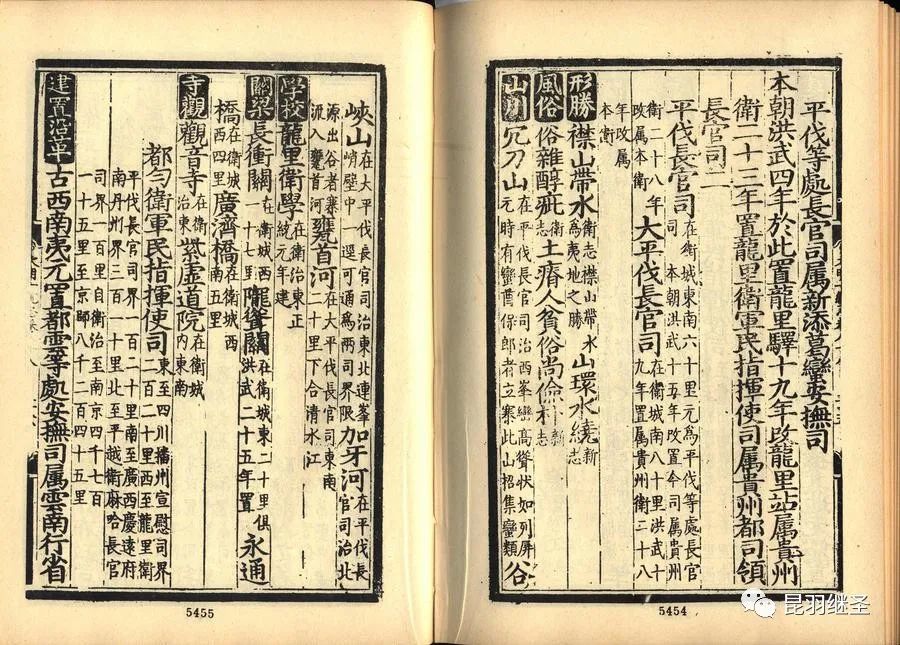 平伐等處長官司属新添葛蠻安撫司
本朝洪武四年於此置龍里驛十九年改龍里站属貴州
衛二十三年置龍里衛軍民指揮使司属貴州都司領
長官司二
平伐長官司在衛城東南六十里元為平伐等處長官司本朝洪武十五年改置今司属貴州
衛二十八年改属本衛大平伐長官司在衛城南八十里洪武十九年置属貴州衛二十八
年改属本衛
形勝襟山帶水衛志襟山帶水為夷地之勝山環水繞新志
風俗俗雜醇疵衛志土瘠人貧俗尚儉朴新志
山川冗刀山在平伐長官司治西峯巒高聳状如列屏元時有蠻酋保郎者立寨此山招集蠻類谷
5454
峽山在大平伐長官司治東北連峯峭壁中一逕可通為兩司界限加牙河在平伐長官司治北
源出谷者寨流入甕首河甕首河在大平伐長官司東南二十里下合清水江
學校龍里衛學在衛治東正統元年建
關梁長衝關在衛城西一十七里隴聳關在衛城東二十里俱洪武二十五年置永通
橋在衛城西四里廣濟橋在衛城西南五里
寺觀觀音寺在衛治東紫虚道院在衛城内東南
都勻衛軍民指揮使司東至四川播州宣慰司界二百二十里西至龍里衛
平伐長官司界一百二十里南至廣西慶遠府南丹州界三百一十里北至平越衛麻哈長官
司界一百里自衛治至南京四千七百一十五里至京師八千二百四十五里
建置沿革古西南夷元置都雲等處安撫司属雲南行省
5455
昆羽继圣